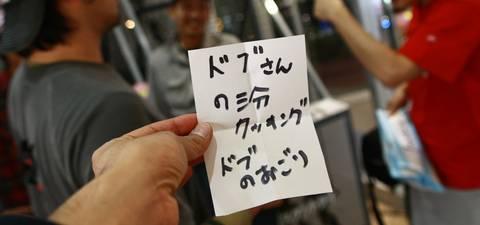 ドブさん
の三分
クッキング
ドブ
のおごり